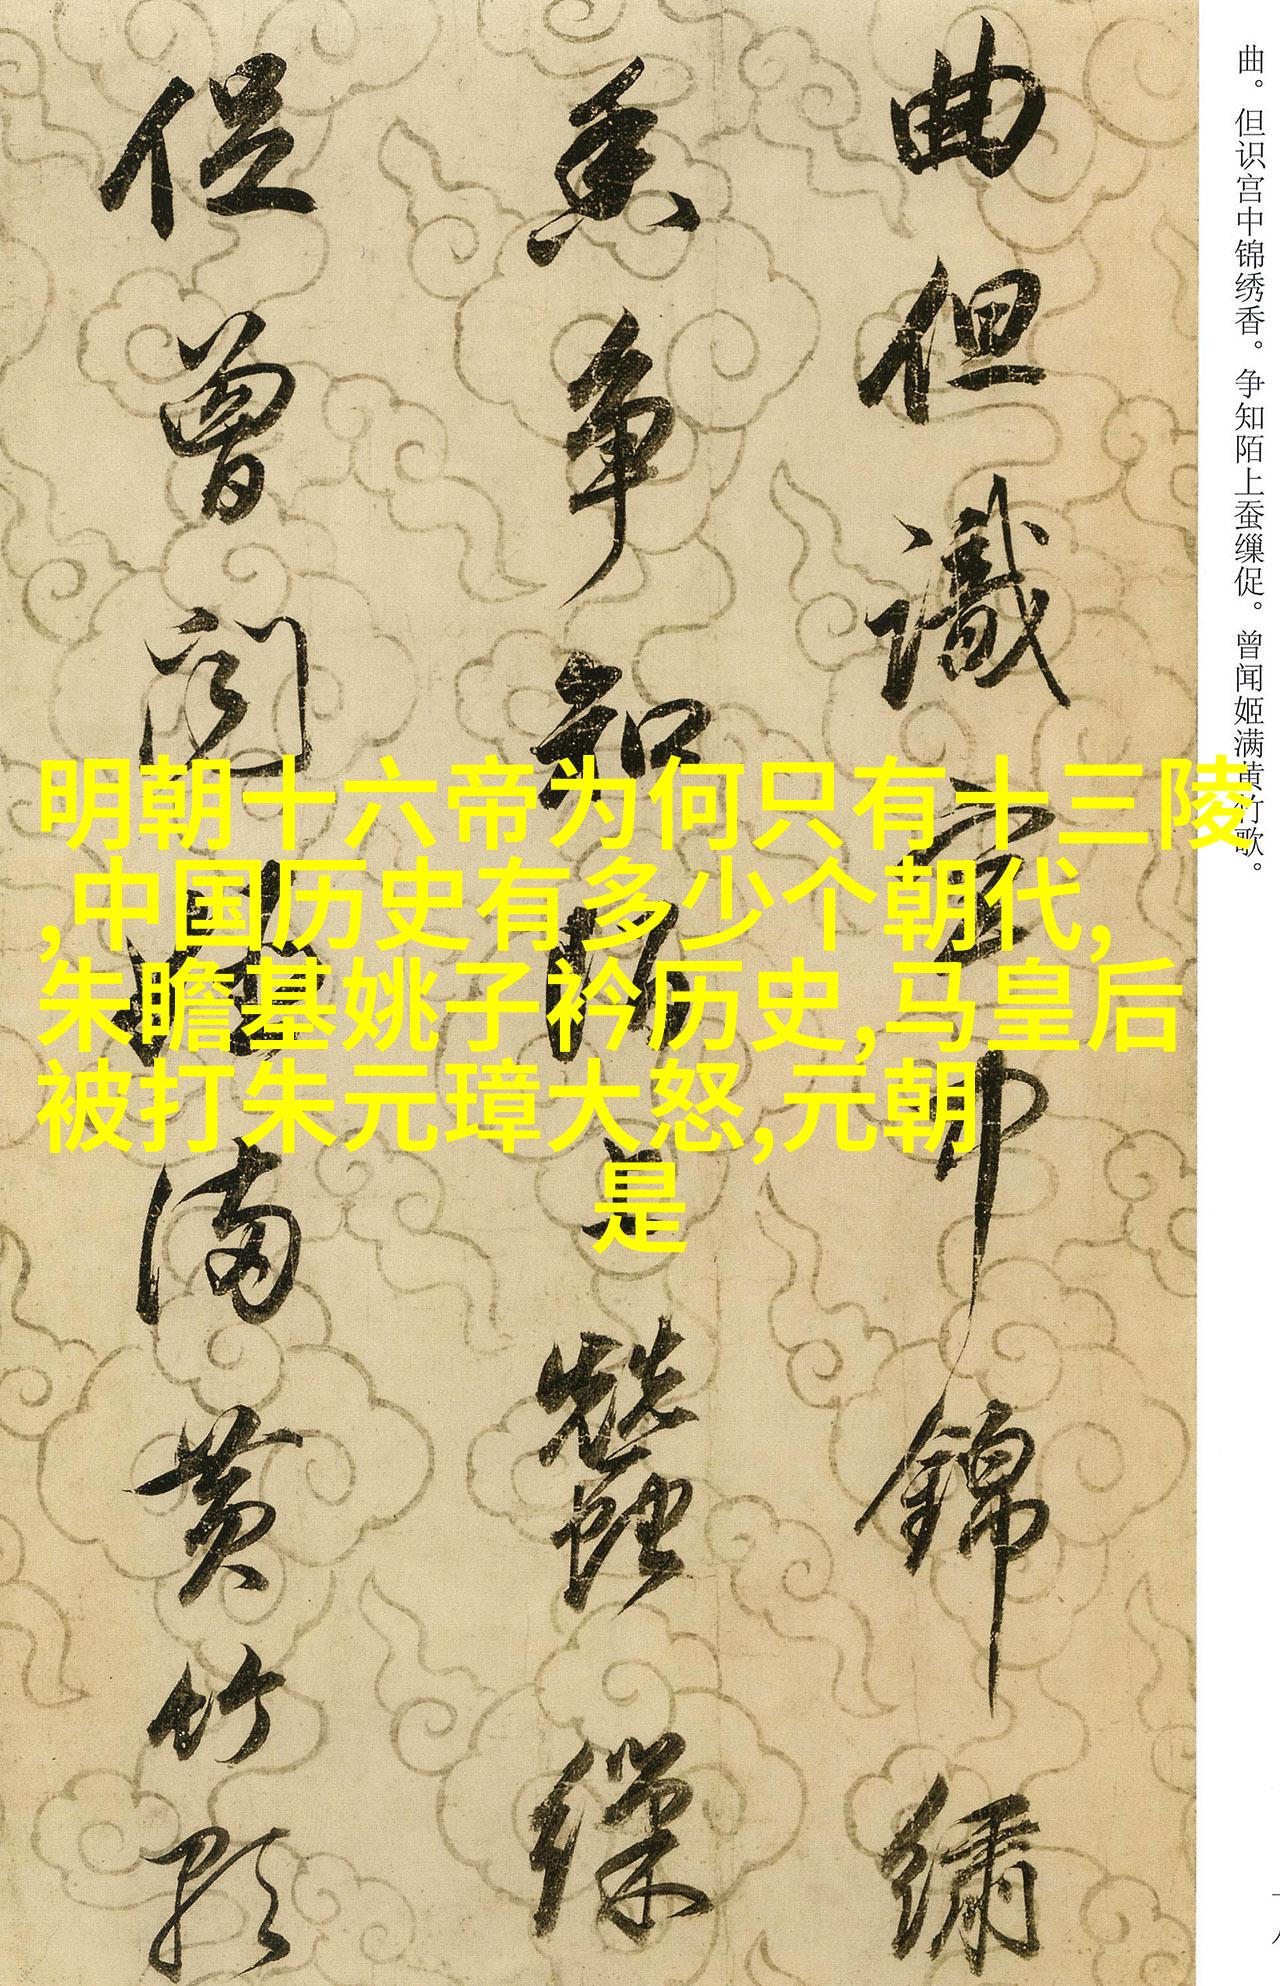 曲但識宫中錦繡
香争知陌上蠶繅
促曾闻姬满黄竹歌
曲。但识宫中锦绣香。争知陌上蚕缫促。曾闻姬满黄竹歌。
明朝十六帝为何只有十三陵
,中国历史有多少个朝代,
朱瞻基姚子衿历史,马皇后
被打朱元璋大怒,元朝
是